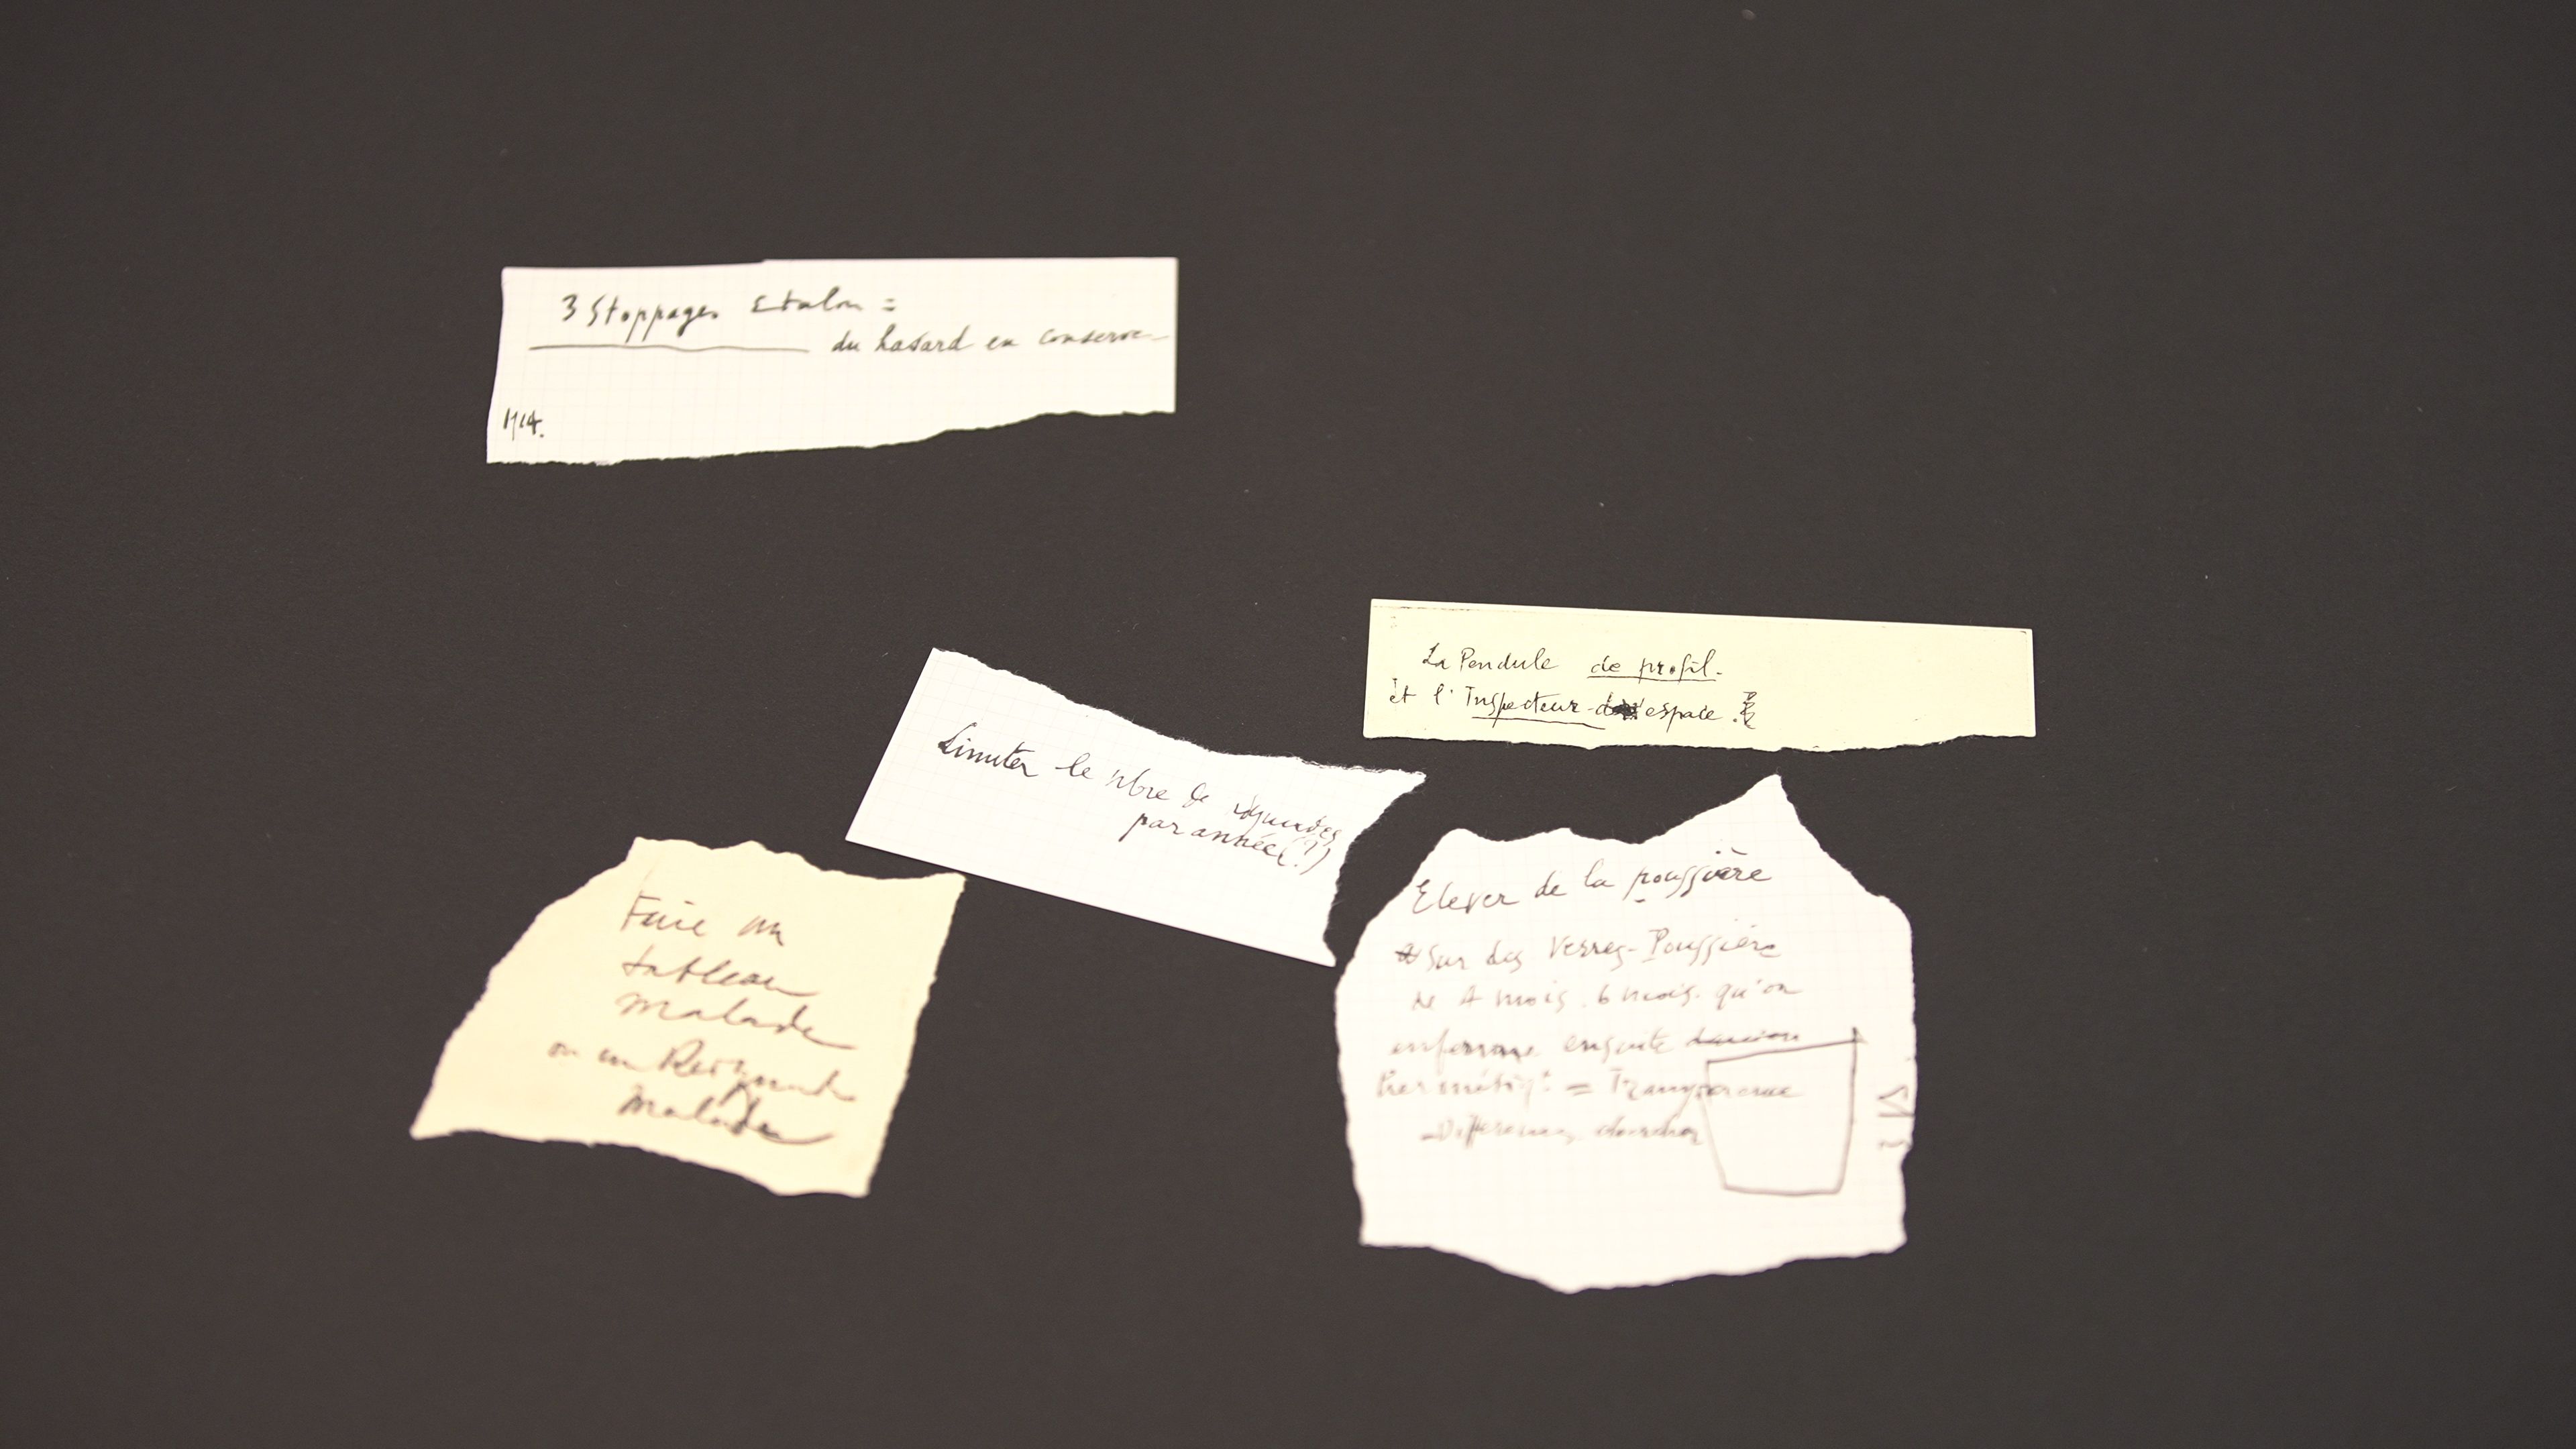 3 Stoppages Etalon =
du hasard en conserve
1914.
La Pendule de profil.
et l'Inspecteur d'espace.
Limiter le nbre de rdymades
par année (?)
Faire un
tableau
malade
ou un Readymade
malade
Elever de la poussière
sur des Verres-Poussière
de 4 mois. 6 mois. qu'on
enferme ensuite
hermétiqt = Transparence
- Différences. chercher